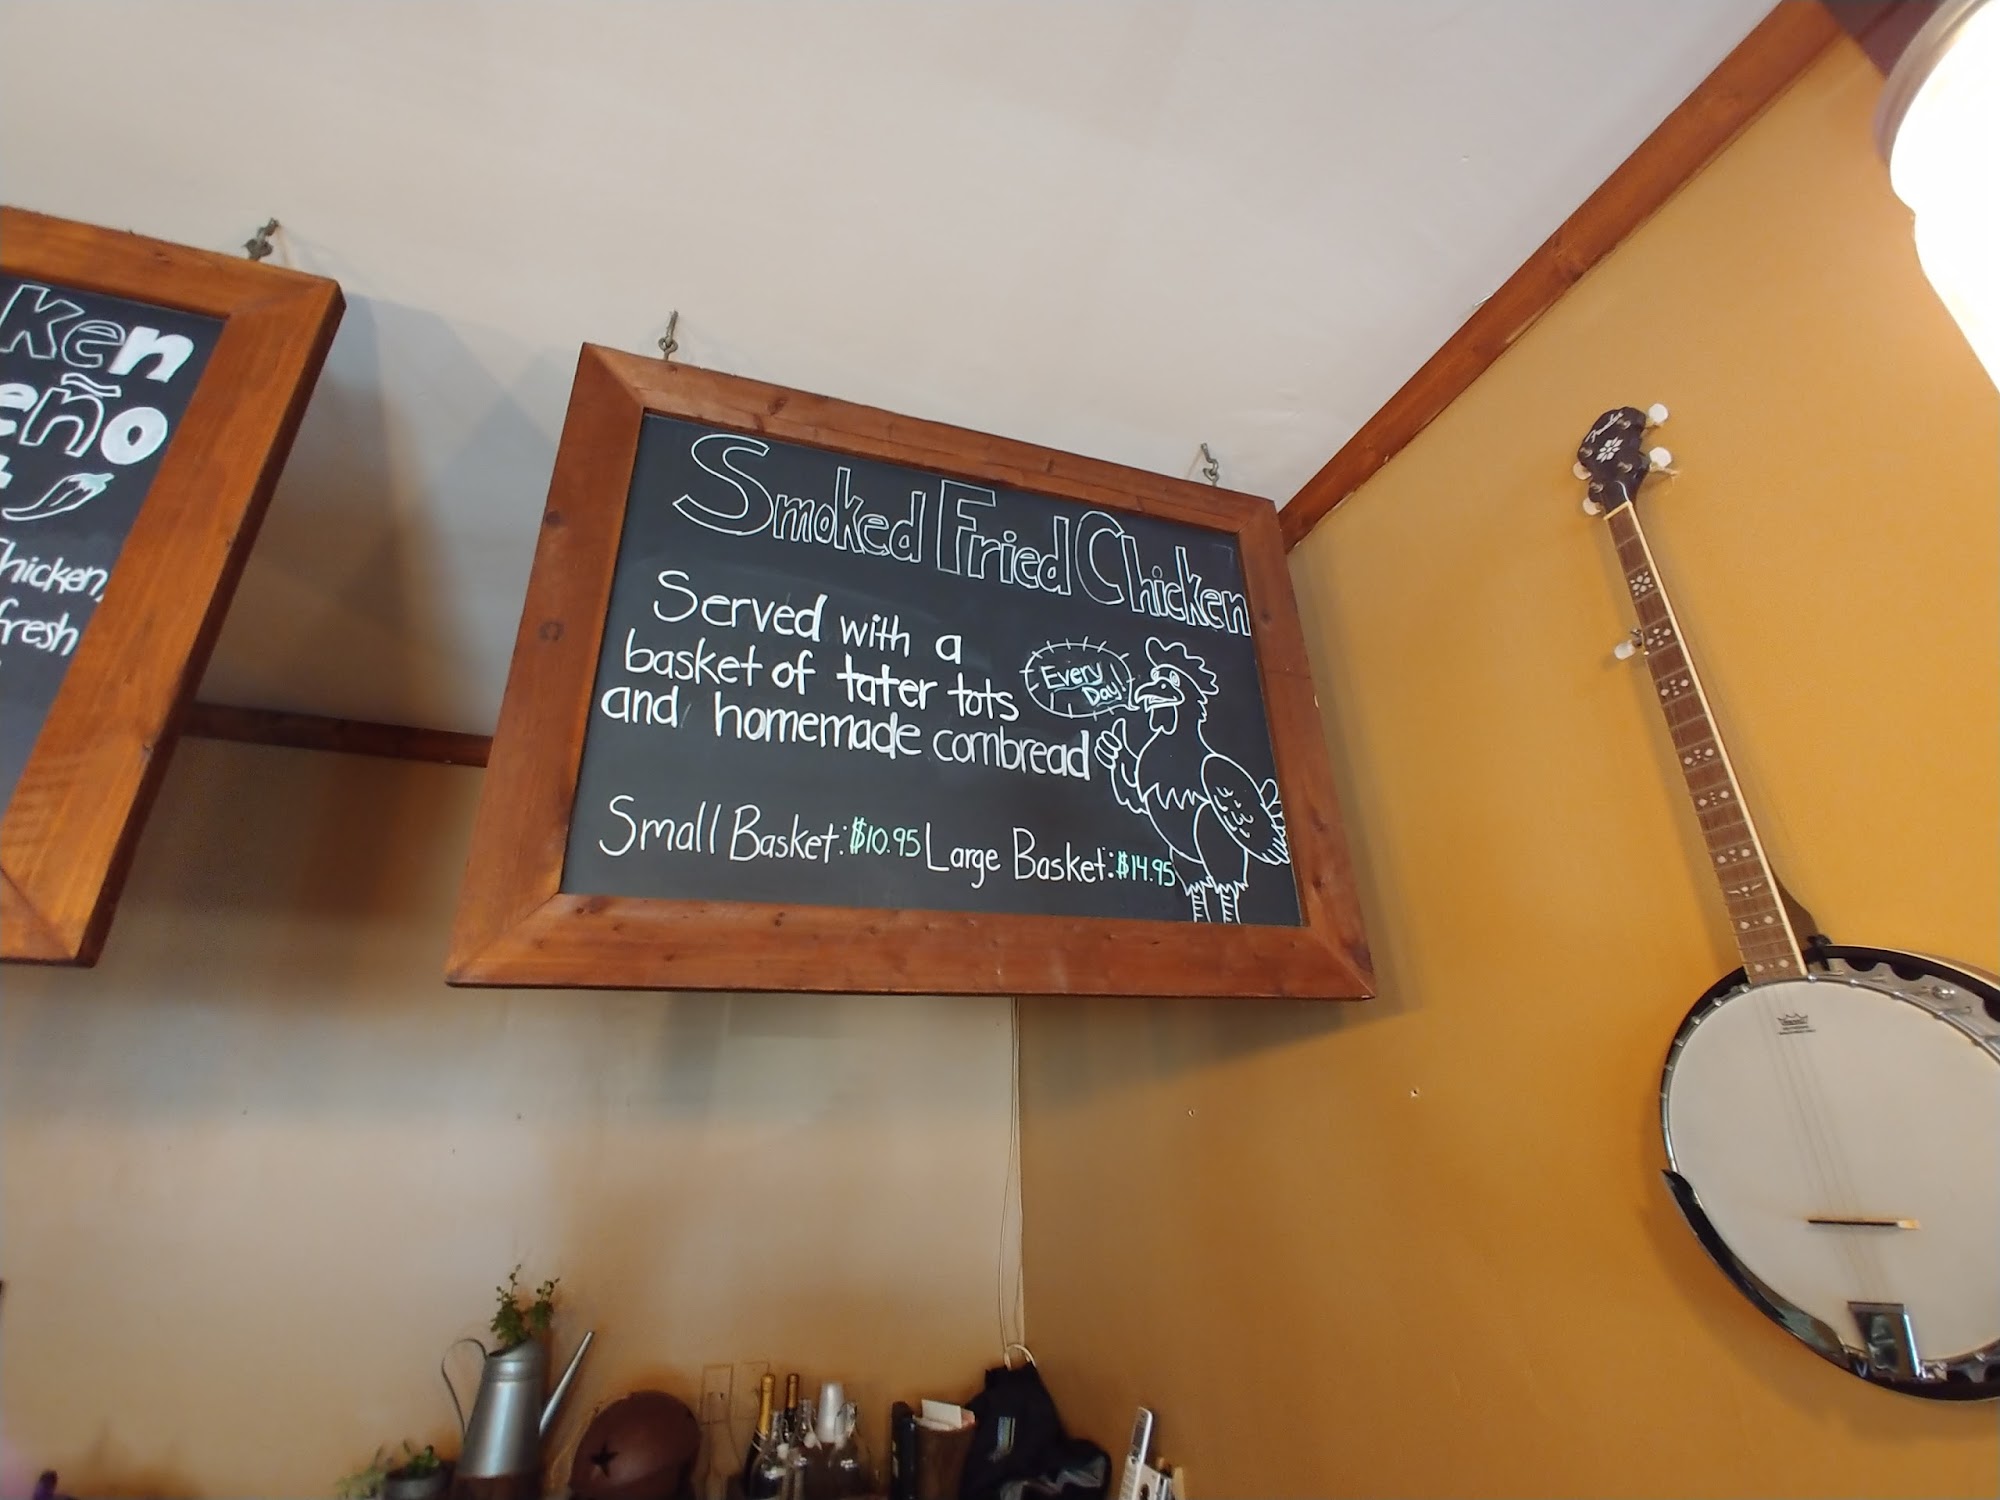 ken
eño
Chicken,
fresh
Smoked Fried Chicken
Served with a
basket of tater tots
and homemade cornbread
Every
Day!
Small Basket: $10.95 Large Basket: $14.95
Fender